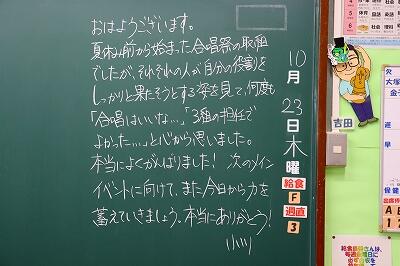 おはようございます。
夏休み前から始まった合唱祭の取組
でしたが、それぞれの人が自分の役割を
しっかりと果たそうとする姿を見て、何度も
「合唱はいいな…」「3組の担任で
よかった…。」と心から思いました。
本当によくがんばりました！ 次のメイン
イベントに向けて、また今日から力を
蓄えていきましょう。本当にありがとう！
小川
10
月
23
日
木
曜
給食
F
週直
3
吉田